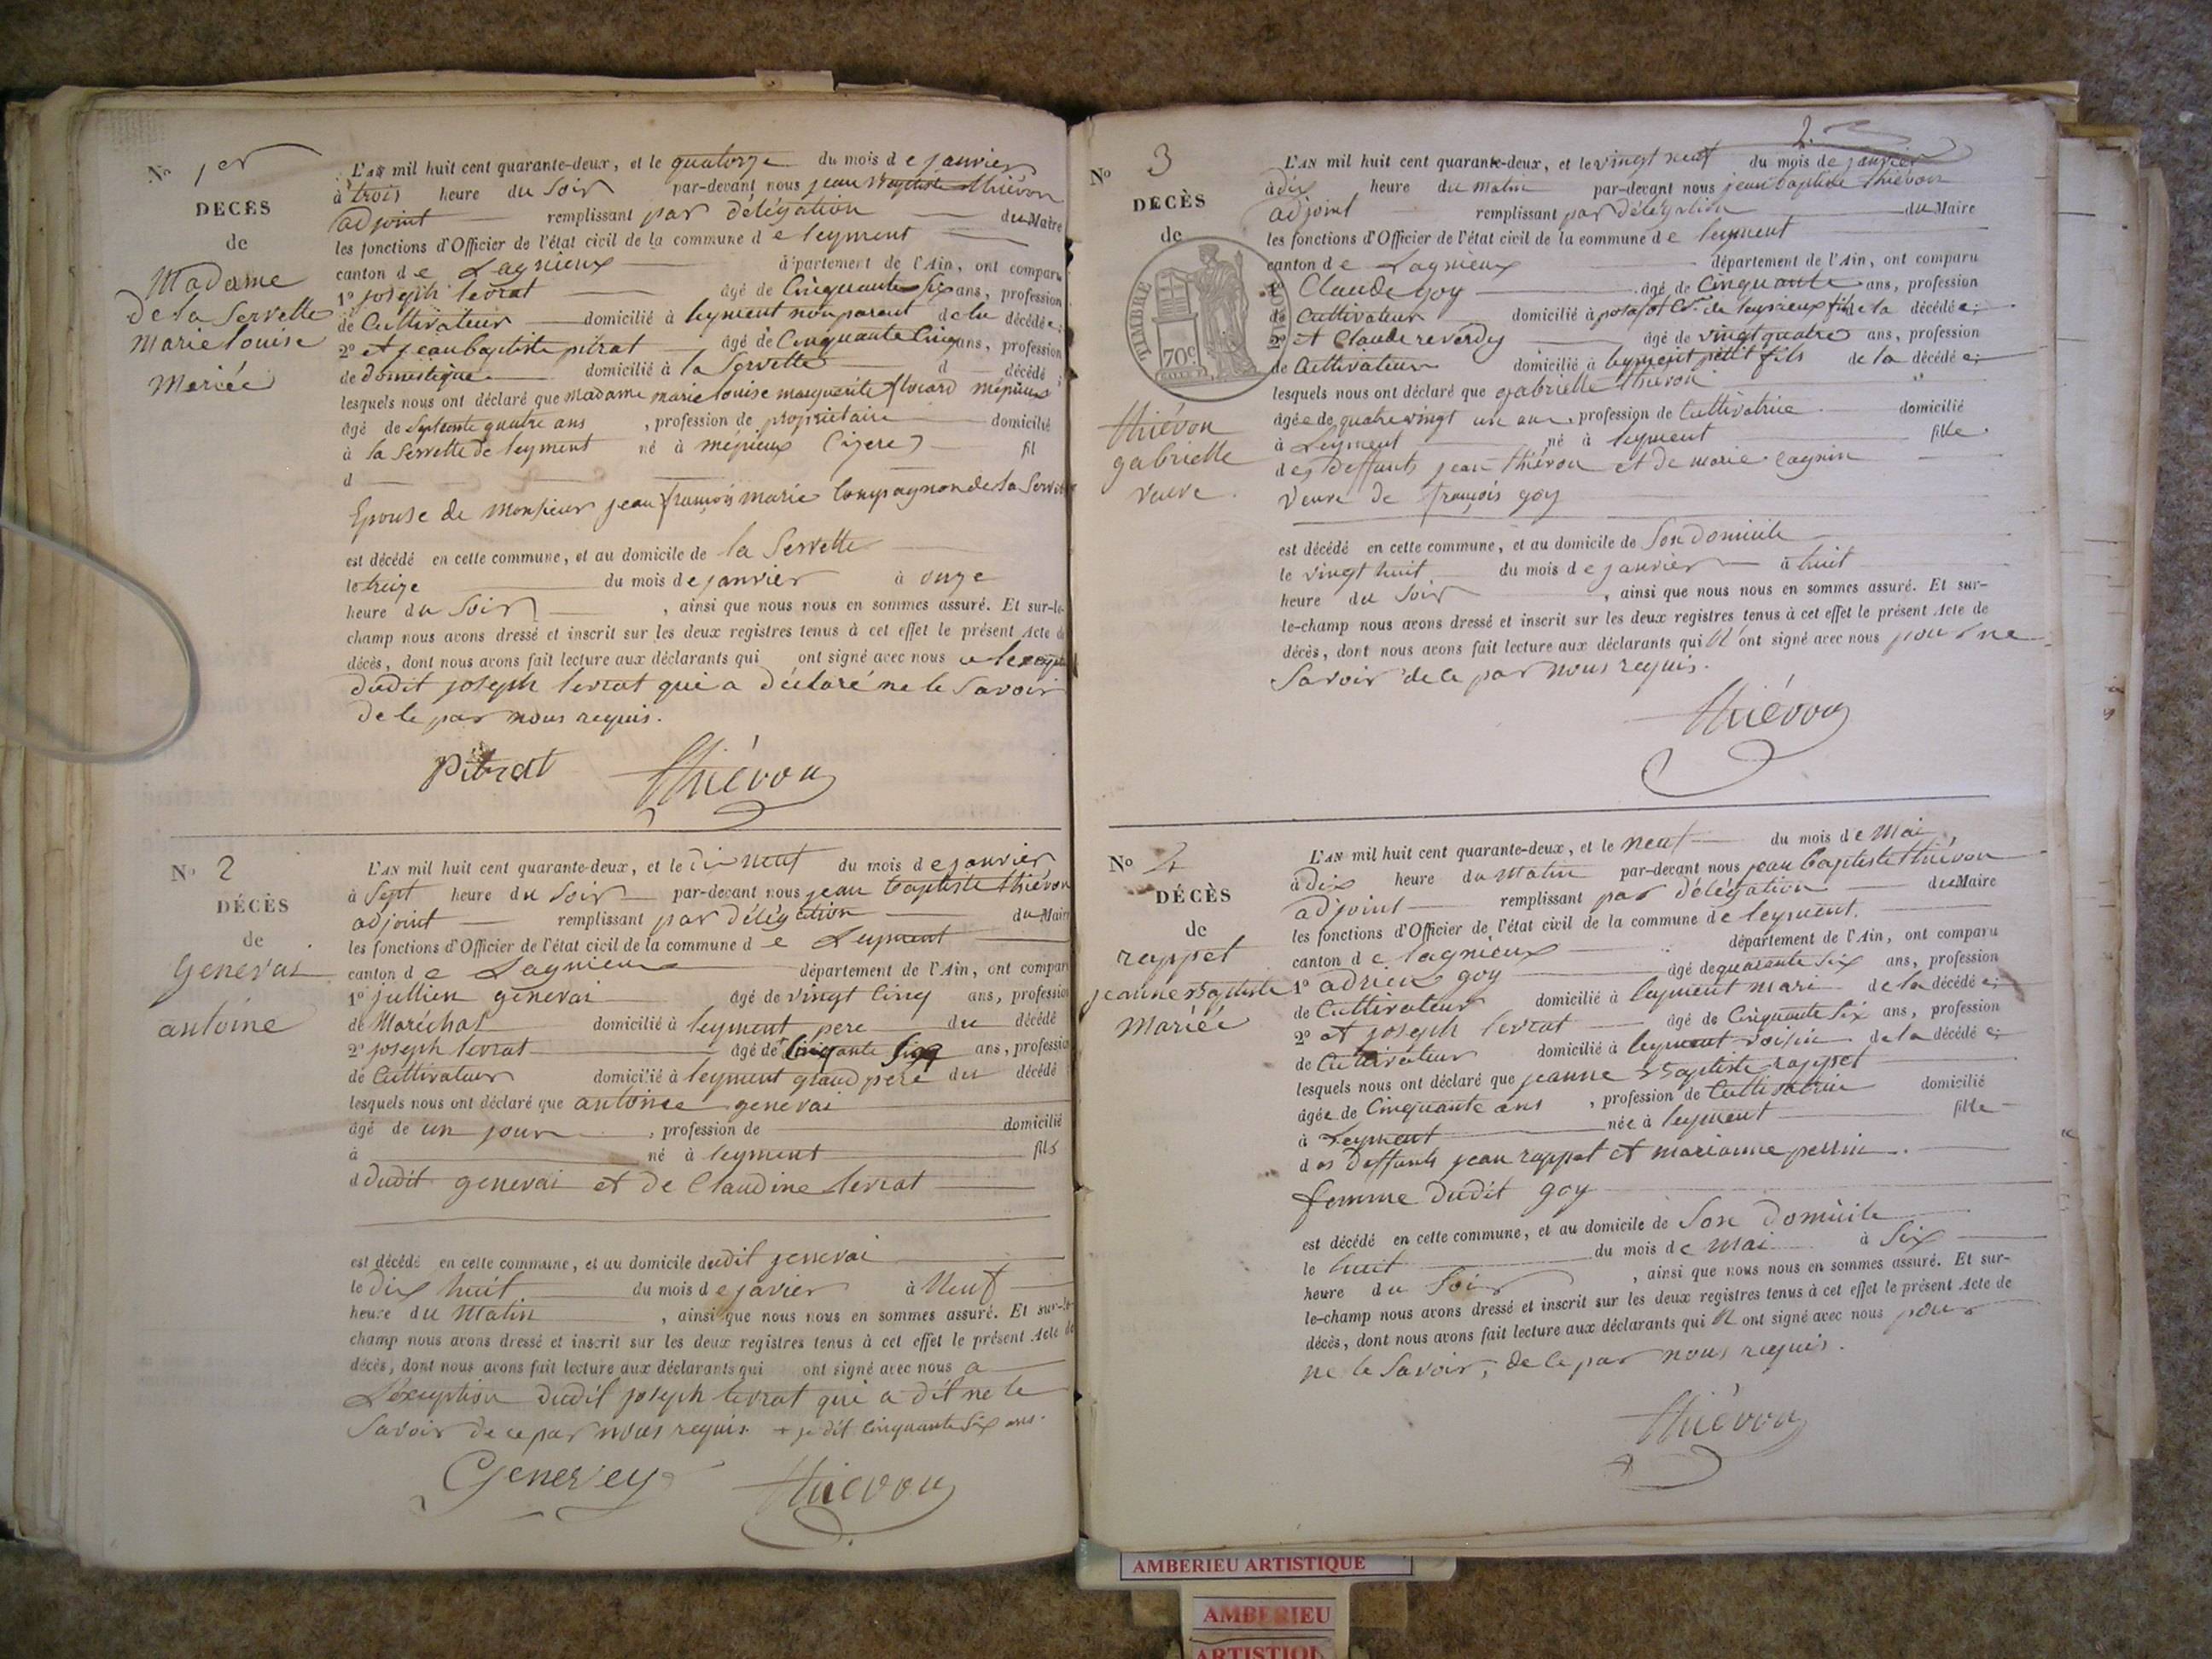 No 1er
DÉCÈS
de
Madame
De la Servette
Marie louise
Mariée
L'AN mil huit cent quarante-deux, et le quatorze du mois de janvier
à trois heure du Soir par-devant nous jean Baptiste thiévon
adjoint remplissant par délégation du Maire
les fonctions d'Officier de l'état civil de la commune de leyment
canton de Lagnieux département de l'Ain, ont comparu
1º joseph levrat âgé de Cinquante six ans, profession
de Cultivateur domicilié à leyment non parent de la décédée;
2º et jean baptiste pitrat âgé de Cinquante Cinq ans, profession
de domestique domicilié à la Servette d décédé;
lesquels nous ont déclaré que madame marie louise marguerite flocard mépieux
âgé de Septente quatre ans, profession de propriétaire domicilié
à la Servette de leyment né à mépieux (izere) fil
d
Epouse de Monsieur jean françois marie Compagnon de la Servette
est décédé en cette commune, et au domicile de la Servette
le treize du mois de janvier à onze
heure du Soir, ainsi que nous nous en sommes assuré. Et sur-le-
champ nous avons dressé et inscrit sur les deux registres tenus à cet effet le présent Acte de
décès, dont nous avons fait lecture aux déclarants qui ont signé avec nous
dudit joseph levrat qui a déclaré ne le Savoir
de le par nous requis.
Pitrat thiévon
No 2
DÉCÈS
de
Genevai
antoine
L'AN mil huit cent quarante-deux, et le dix neuf du mois de janvier
à Sept heure du Soir par-devant nous jean baptiste thiévon
adjoint remplissant par délégation du Maire
les fonctions d'Officier de l'état civil de la commune de Leyment
canton de Lagnieux département de l'Ain, ont comparu
1º jullien genevai âgé de vingt Cinq ans, profession
de Maréchal domicilié à leyment pere du décédé
2º joseph levrat âgé de + Cinquante ans, profession
de Cultivateur domicilié à leyment grand pere du décédé
lesquels nous ont déclaré que antoine genevai
âgé de un jour, profession de domicilié
à né à leyment fils
d dudit genevai et de Claudine levrat
est décédé en cette commune, et au domicile dudit genevai
le Dix huit du mois de javier à Neuf
heure du Matin, ainsi que nous nous en sommes assuré. Et sur-le-
champ nous avons dressé et inscrit sur les deux registres tenus à cet effet le présent Acte de
décès, dont nous avons fait lecture aux déclarants qui ont signé avec nous a
L'exception dudit joseph levrat qui a dit ne le
Savoir de ce par nous requis. + je dit Cinquante Six ans.
Genevey thievon
2
No 3
DÉCÈS
de
TIMBRE
70c
thiévon
gabrielle
veuve.
L'AN mil huit cent quarante-deux, et le vingt neuf du mois de janvier
à dix heure du Matin par-devant nous jean baptiste thiévon
adjoint remplissant par délégation du Maire
les fonctions d'Officier de l'état civil de la commune de leyment
canton de Lagnieux département de l'Ain, ont comparu
1º Claude goy âgé de Cinquante ans, profession
de Cultivateur domicilié à de fils de la décédée;
2º et Claude reverdy âgé de vingt quatre ans, profession
de Cultivateur domicilié à leyment petit fils de la décédée;
lesquels nous ont déclaré que gabrielle thievon
âgée de quatre vingt un ans, profession de Cultivatrice domicilié
à Leyment né à leyment fille
des deffunts jean thiévon et de marie cagnin
veuve de françois goy
est décédé en cette commune, et au domicile de Son Domicile
le vingt huit du mois de janvier à huit
heure du Soir, ainsi que nous nous en sommes assuré. Et sur-
le-champ nous avons dressé et inscrit sur les deux registres tenus à cet effet le présent Acte de
décès, dont nous avons fait lecture aux déclarants qui N'ont signé avec nous pour ne
Savoir de ce par nous requis.
thiévon
No 4
DÉCÈS
de
rappet
jeanne Baptiste
Mariée
L'AN mil huit cent quarante-deux, et le neuf du mois de Mai,
à Dix heure du Matin par-devant nous jean baptiste thiévon
adjoint remplissant par délégation du Maire
les fonctions d'Officier de l'état civil de la commune de leyment.
canton de lagnieux département de l'Ain, ont comparu
1º adrien goy âgé de quarante Six ans, profession
de Cultivateur domicilié à leyment mari de la décédée;
2º et joseph levrat âgé de Cinquante Six ans, profession
de Cultivateur domicilié à leyment voisin de la décédée;
lesquels nous ont déclaré que jeanne Baptiste rappet
âgée de Cinquante ans, profession de Cultivatrice domicilié
à Leyment née à leyment fille
des Deffunts jean rappet et marianne perrin
femme dudit goy
est décédé en cette commune, et au domicile de Son Domicile
le huit du mois de Mai à Six
heure du Soir, ainsi que nous nous en sommes assuré. Et sur-
le-champ nous avons dressé et inscrit sur les deux registres tenus à cet effet le présent Acte de
décès, dont nous avons fait lecture aux déclarants qui N'ont signé avec nous pour
ne le Savoir, de ce par nous requis.
thiévon
AMBERIEU ARTISTIQUE
AMBERIEU
ARTISTIQU